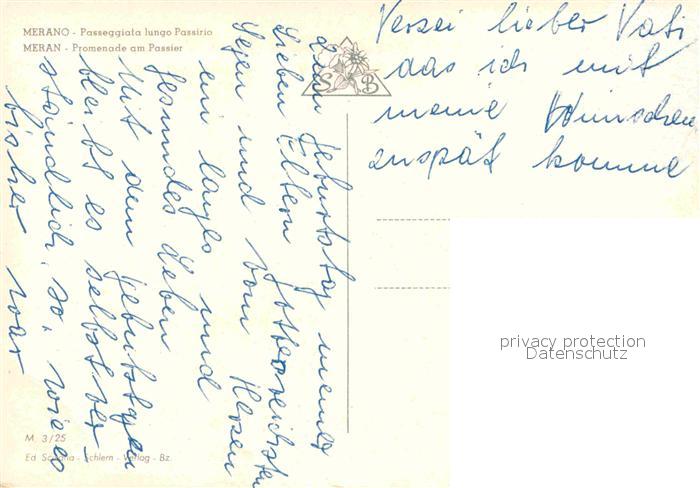 MERANO - Passeggiata lungo Passirio
MERAN - Promenade am Passier
S B
Verzei lieber Vati
das ich mit
meine Wünschen
zuspät komme
zum Geburtstag meiner
Lieben Eltern Gottesreichsten
Segen und vom Herzen
ein langes und
gesundes Leben.
Mit dem Geburtstagen
bleibt es selbstver-
ständlich so, wie es
bisher war
M 3/25
Ed - Schlern - Verlag - Bz.
privacy protection
Datenschutz